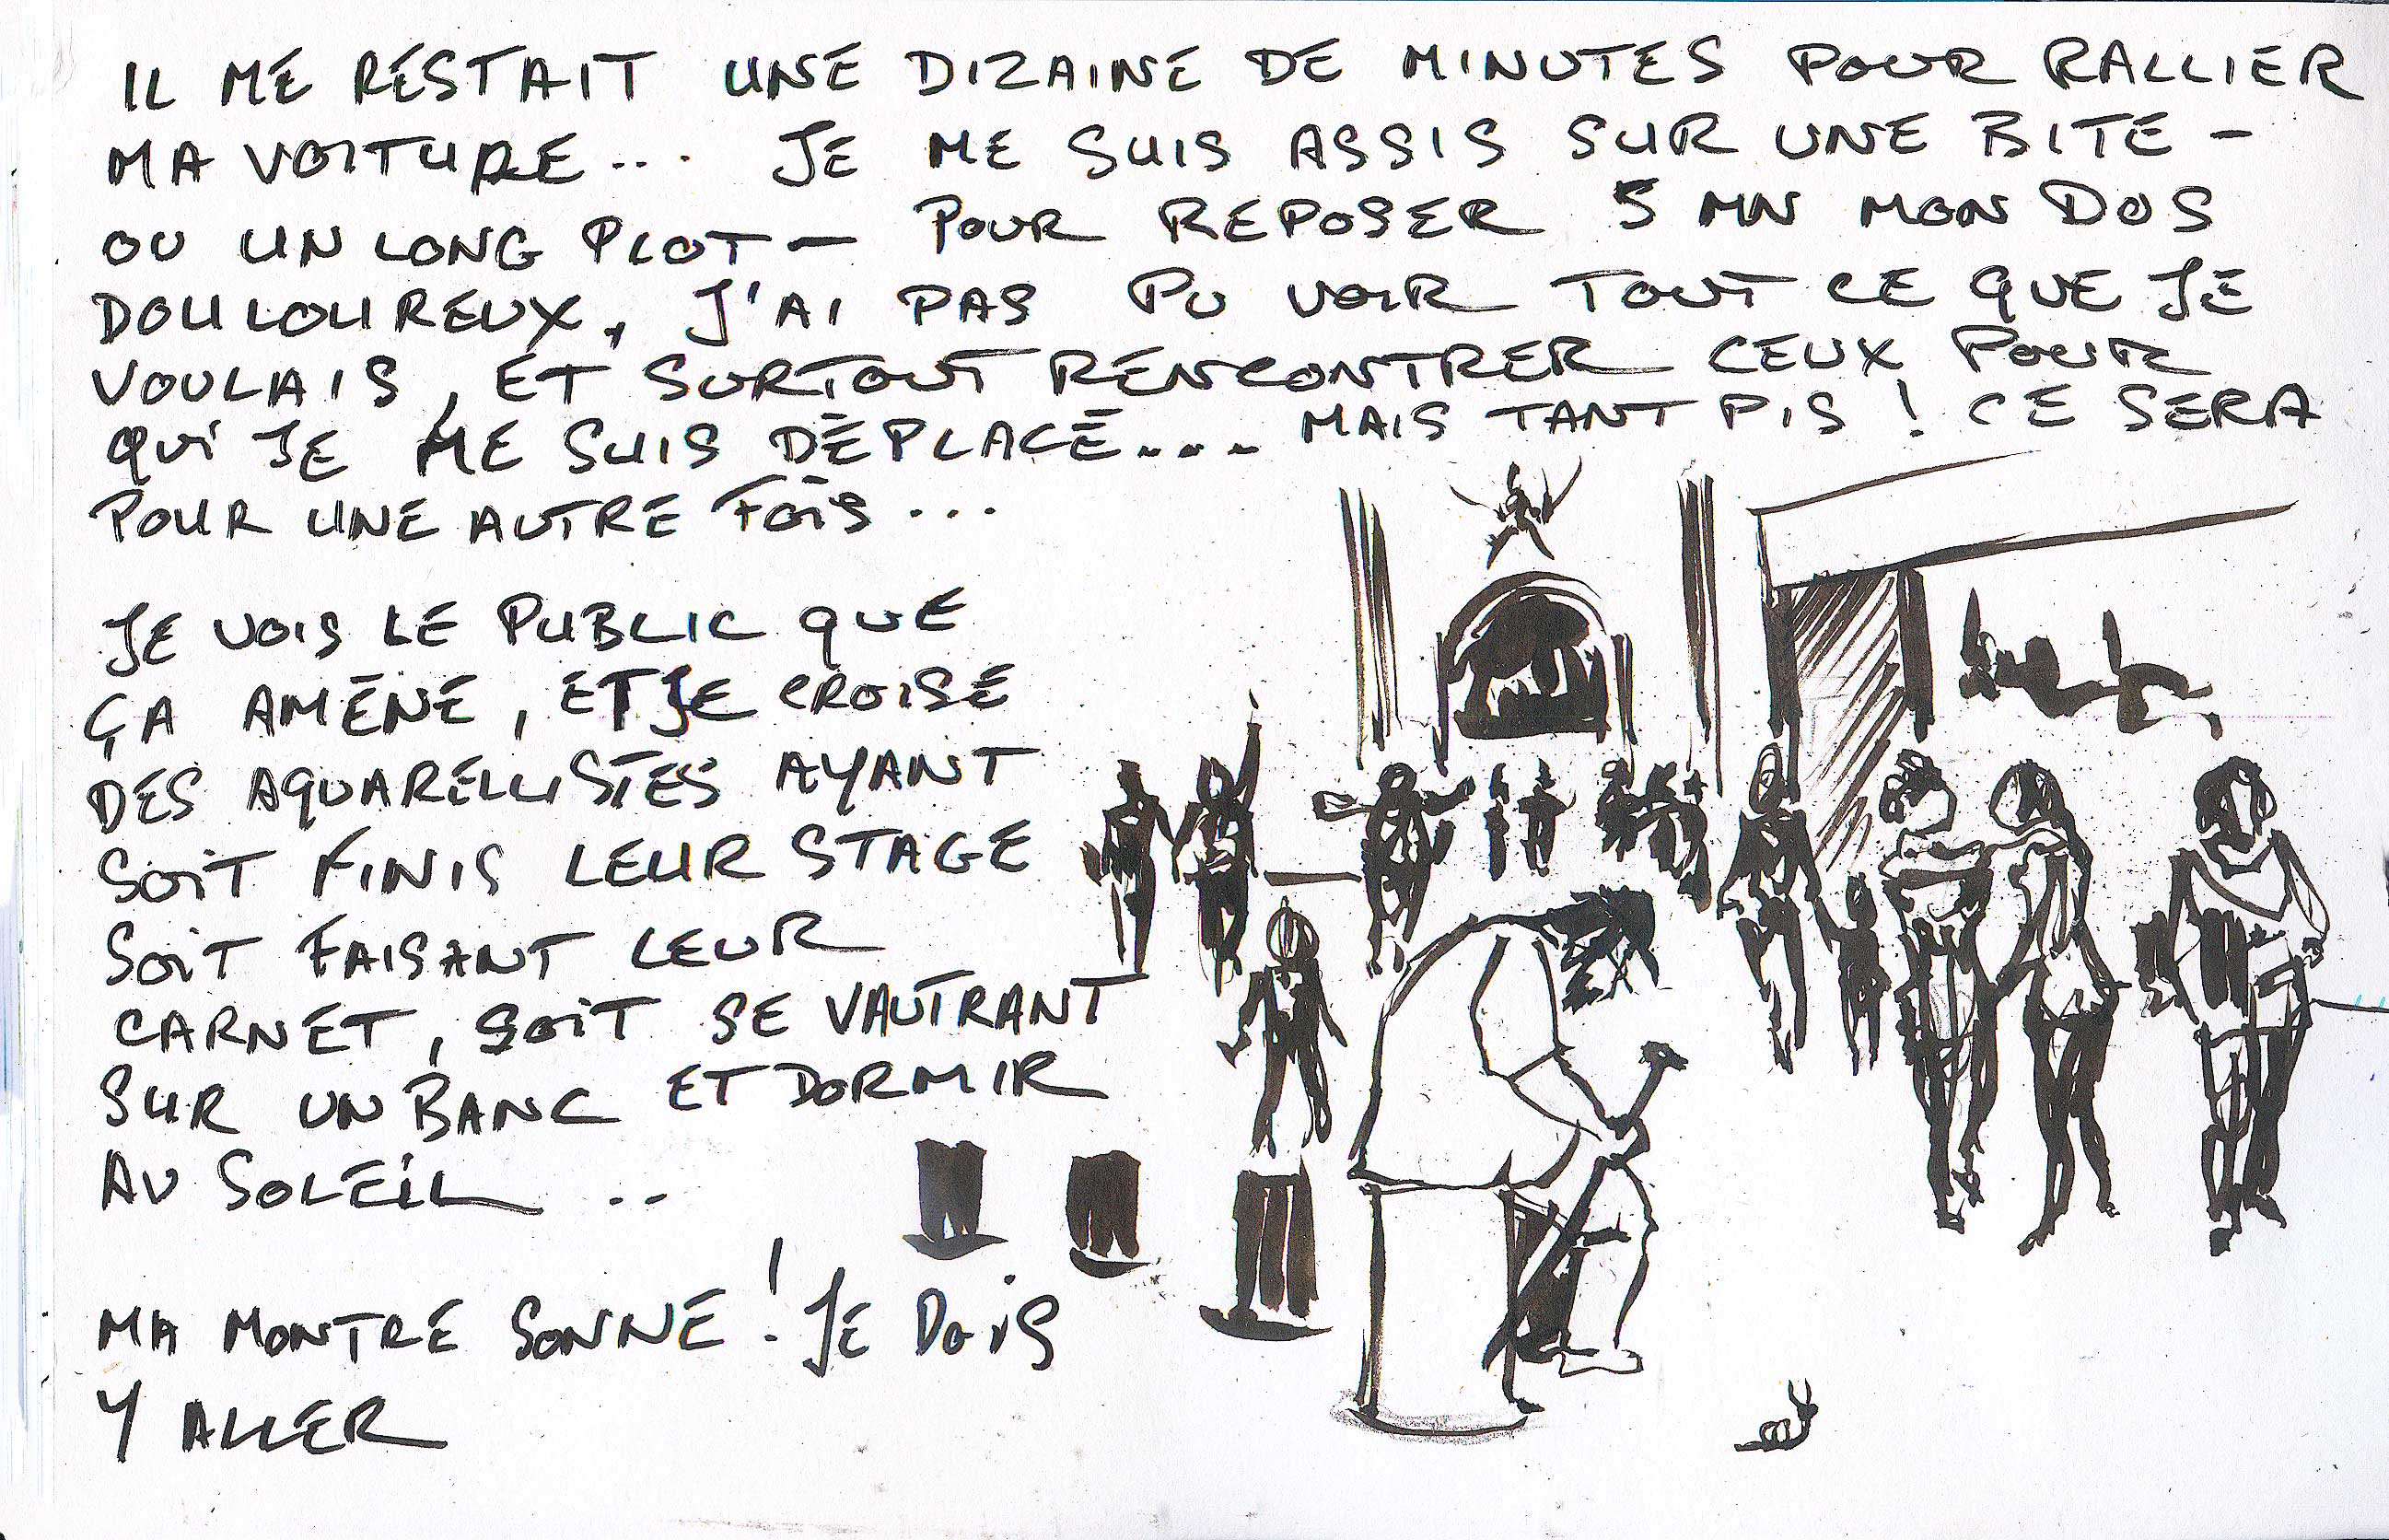 IL ME RESTAIT UNE DIZAINE DE MINUTES POUR RALLIER
MA VOITURE... JE ME SUIS ASSIS SUR UNE BITE -
OU UN LONG PLOT - POUR REPOSER 5 MN MON DOS
DOULOUREUX, J'AI PAS PU VOIR TOUT CE QUE JE
VOULAIS, ET SURTOUT RENCONTRER CEUX POUR
QUI JE ME SUIS DÉPLACÉ... MAIS TANT PIS ! CE SERA
POUR UNE AUTRE FOIS...
JE VOIS LE PUBLIC QUE
ÇA AMÈNE, ET JE CROISE
DES AQUARELLISTES AYANT
SOIT FINIS LEUR STAGE
SOIT FAISANT LEUR
CARNET, SOIT SE VAUTRANT
SUR UN BANC ET DORMIR
AU SOLEIL ..
MA MONTRE SONNE ! JE DOIS
Y ALLER